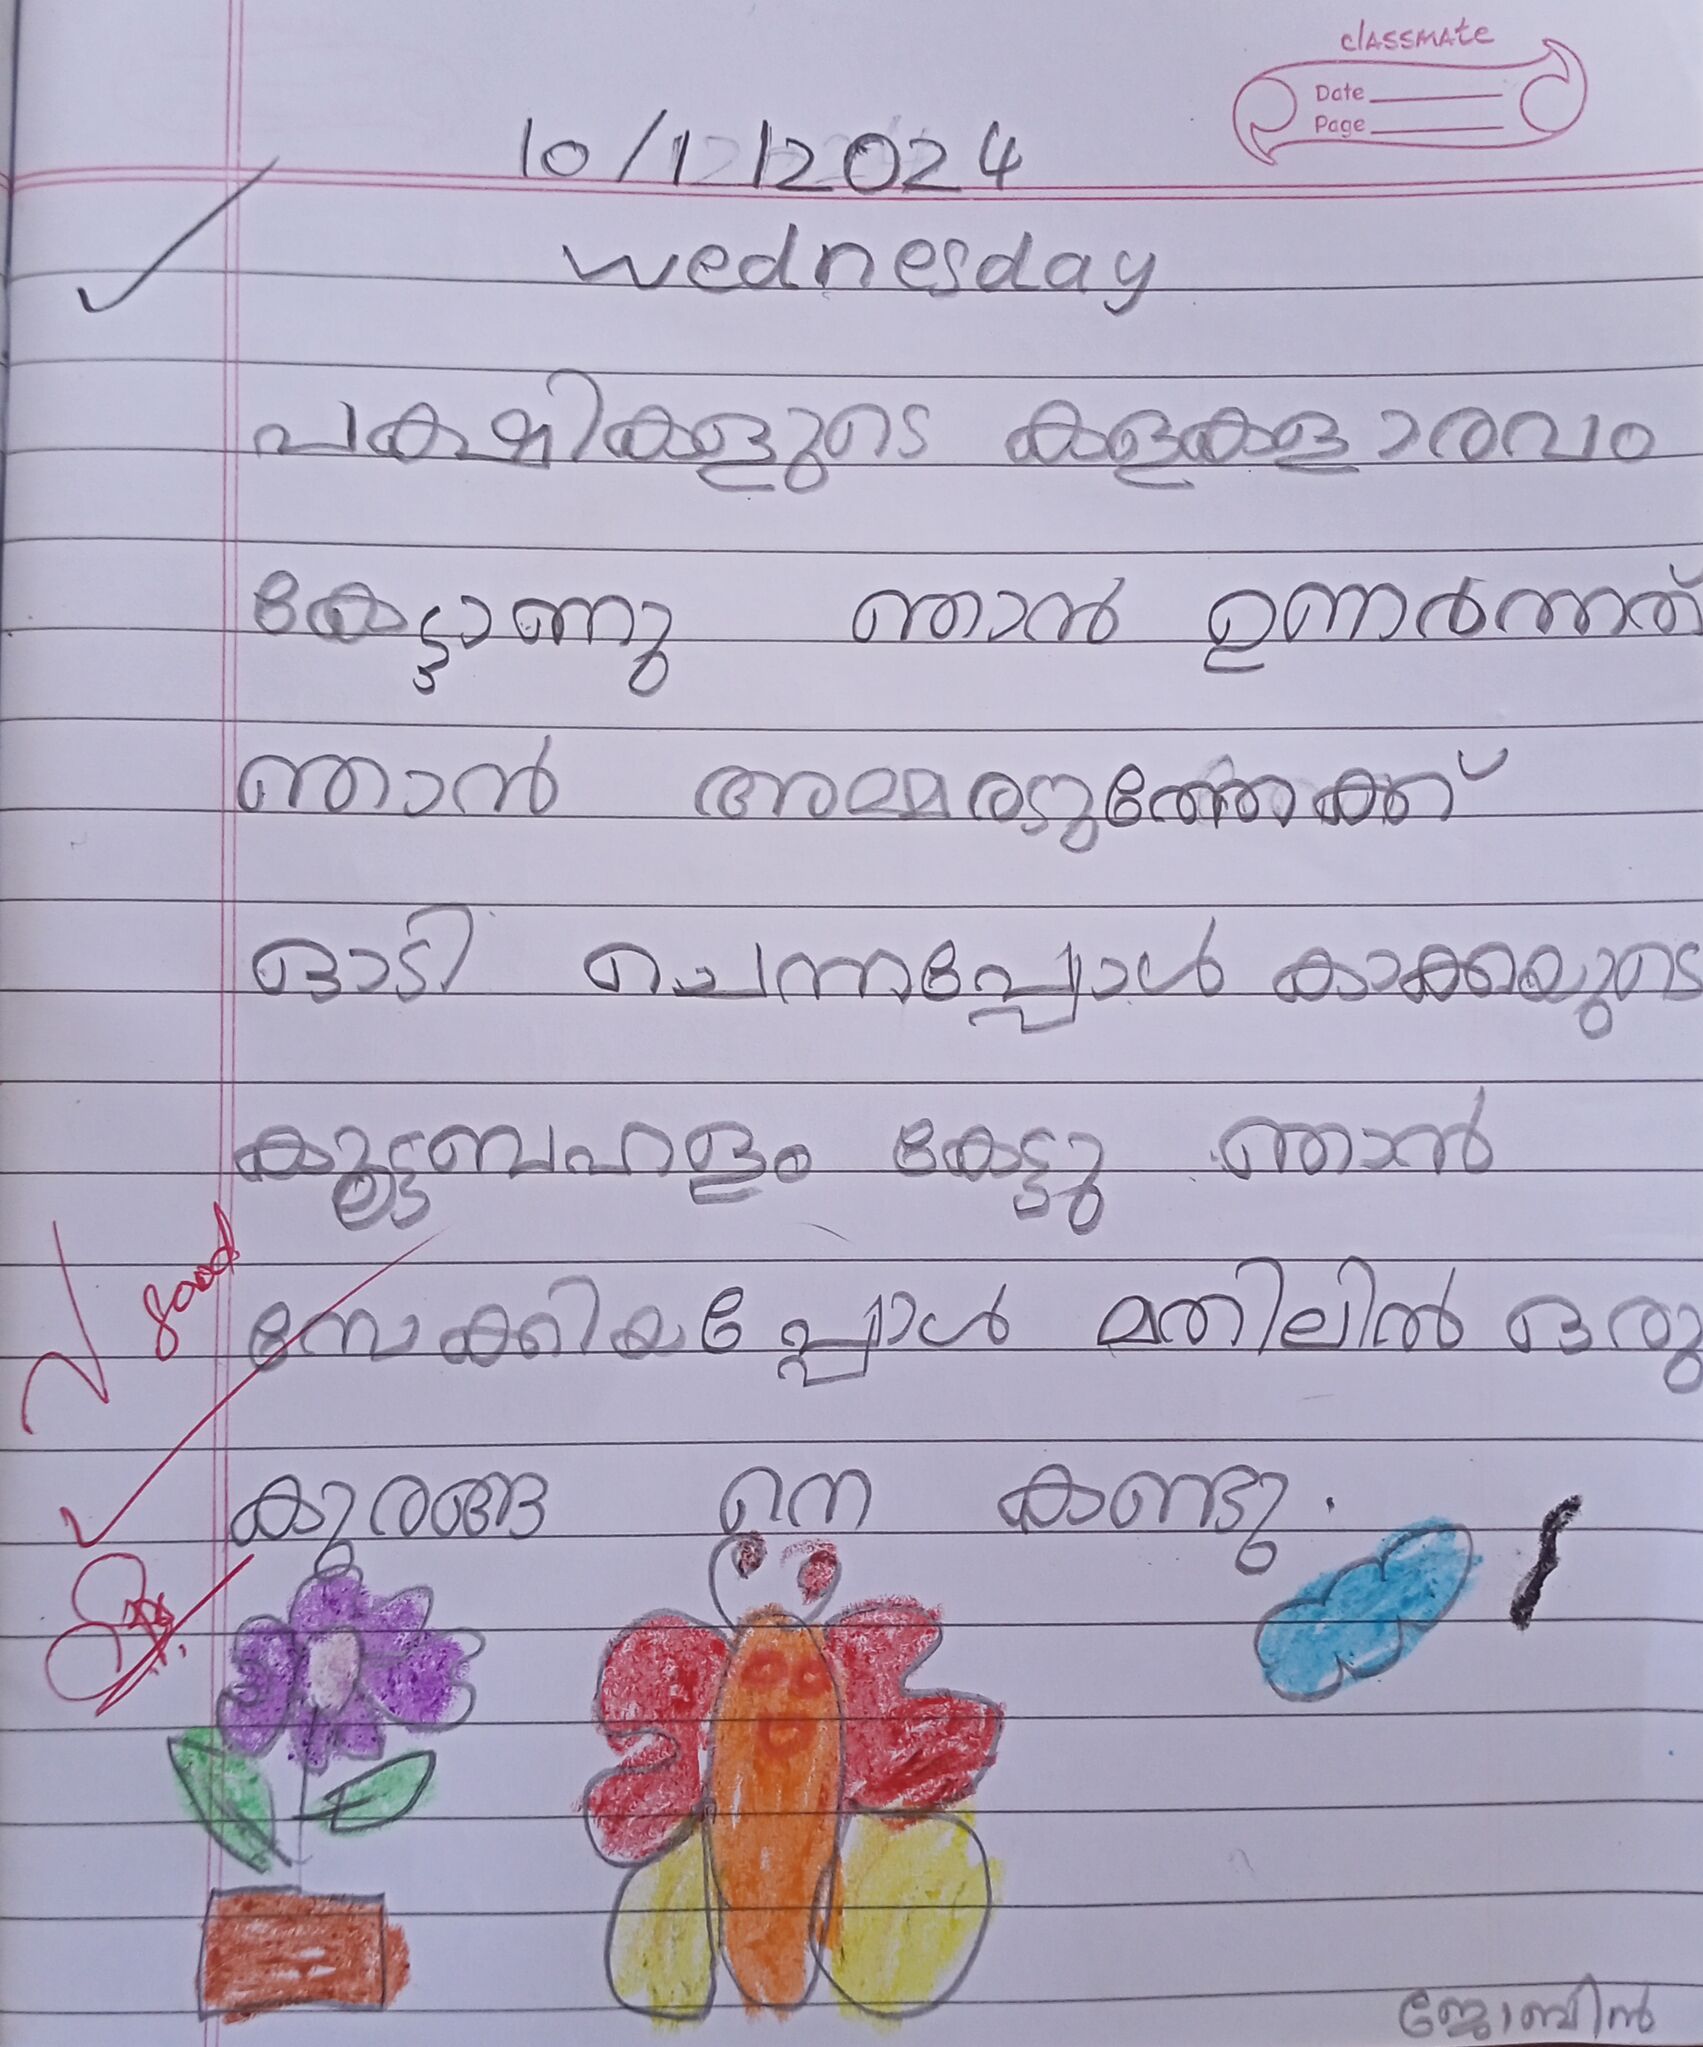 classmate
Date
Page
10/1/2024
wednesday
പക്ഷികളുടെ കളകളാരവം
കേട്ടാണു ഞാൻ ഉണർന്നത്
ഞാൻ അമ്മരടുത്തേക്ക്
ഓടി ചെന്നപ്പോൾ കാക്കയുടെ
കൂട്ടബഹളം കേട്ടു ഞാൻ
നോക്കിയപ്പോൾ മതിലിൽ ഒരു
good
കുരങ്ങ നെ കണ്ടു.
ജോബിൻ